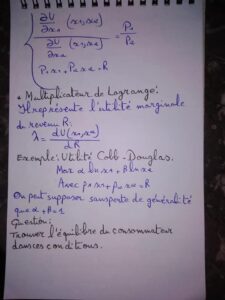 ∂U/∂x₁ (x₁,x₂) / ∂U/∂x₂ (x₁,x₂) = P₁/P₂
P₁x₁ + P₂x₂ = R
* Multiplicateur de Lagrange:
Il représente l'utilité marginale
du revenu R:
λ = dU(x₁,x₂)/dR
Exemple: Utilité Cobb-Douglas.
Max α ln x₁ + β ln x₂
Avec p₁x₁ + p₂x₂ = R
On peut supposer sans perte de généralité
que α + β = 1
Question:
Trouver l'équilibre du consommateur
dans ces conditions.